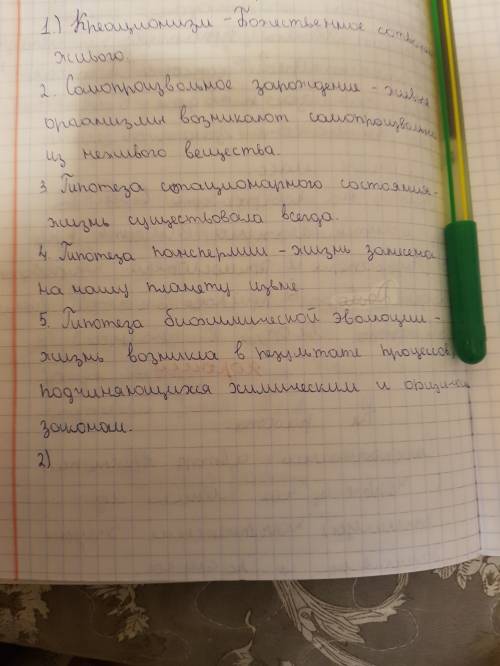 1.) Креационизм - Божественное сотворение
живого.
2. Самопроизвольное зарождение - живые
организмы возникают самопроизвольно
из неживого вещества.
3 Гипотеза стационарного состояния -
жизнь существовала всегда.
4 Гипотеза панспермии - жизнь занесена
на нашу планету извне.
5. Гипотеза биохимической эволюции -
жизнь возникла в результате процессов,
подчиняющихся химическим и физическим
законам.
2)